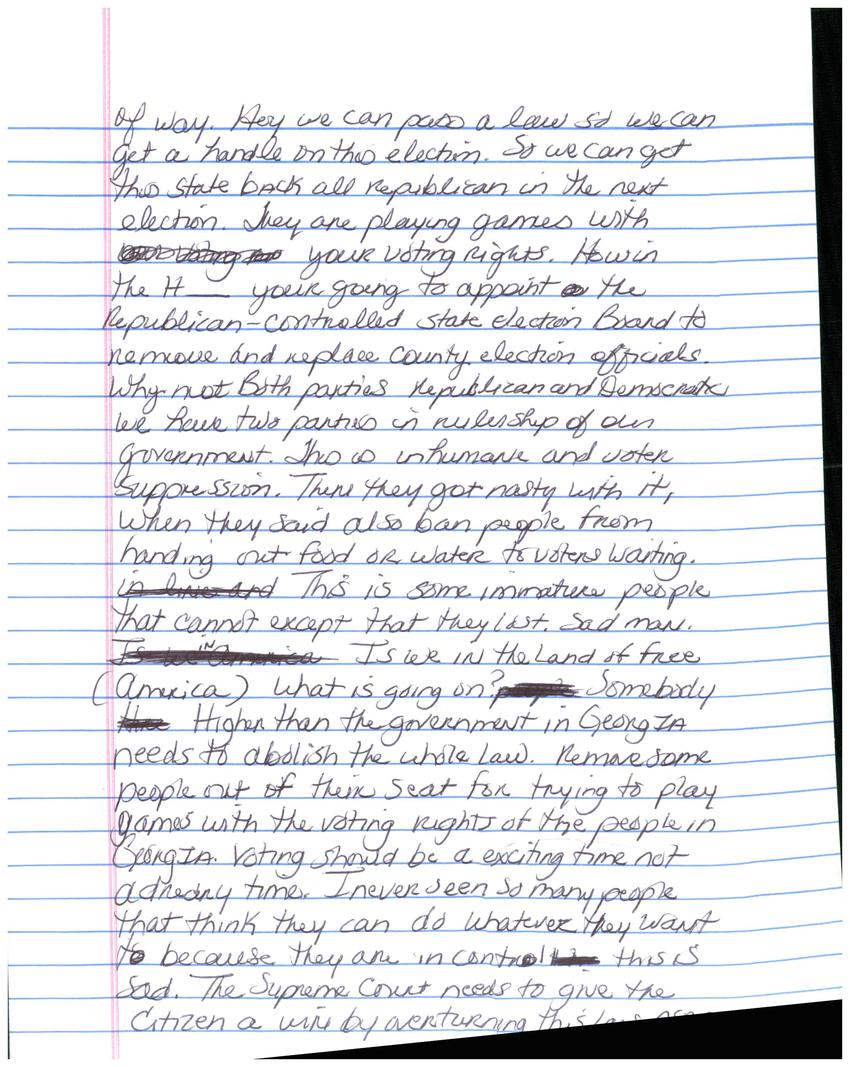 of way. Hey we can pass a law so we can
get a handle on this election. So we can get
this state back all republican in the next
election. They are playing games with
your voting rights. How in
the H___ your going to appoint the
Republican-controlled state election Board to
remove and replace county election officials.
Why not Both parties Republican and Democratic
we have two parties in rulership of our
government. This is inhumane and voter
suppression. Then they got nasty with it,
when they said also ban people from
handing out food or water to voters waiting.
in lines and This is some immature people
that cannot except that they lost. Sad man.
Is we IN America Is we in the Land of free
(America) What is going on? Somebody
Higher than the government in GeorgIA
needs to abolish the whole law. Remove some
people out of their seat for trying to play
games with the voting rights of the people in
GeorgIA. Voting should be a exciting time not
a dreary time. I never seen so many people
that think they can do whatever they want
to because they are in control this is
Sad. The Supreme Court needs to give the
Citizen a win by overturning this law